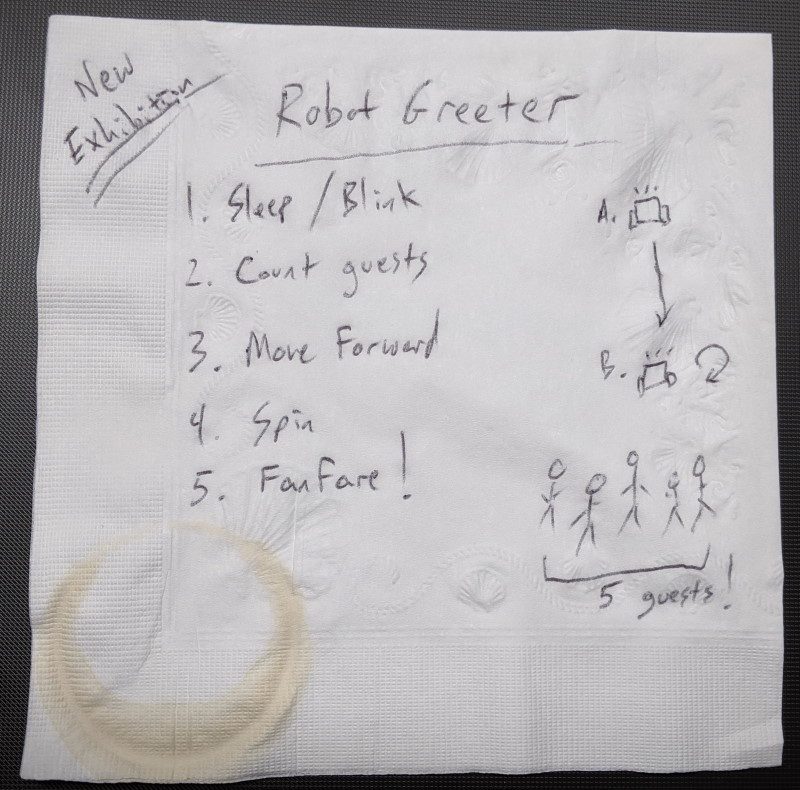 New
Exhibition
Robot Greeter
1. Sleep / Blink
2. Count guests
3. Move Forward
4. Spin
5. Fanfare!
A.
B.
5 guests!